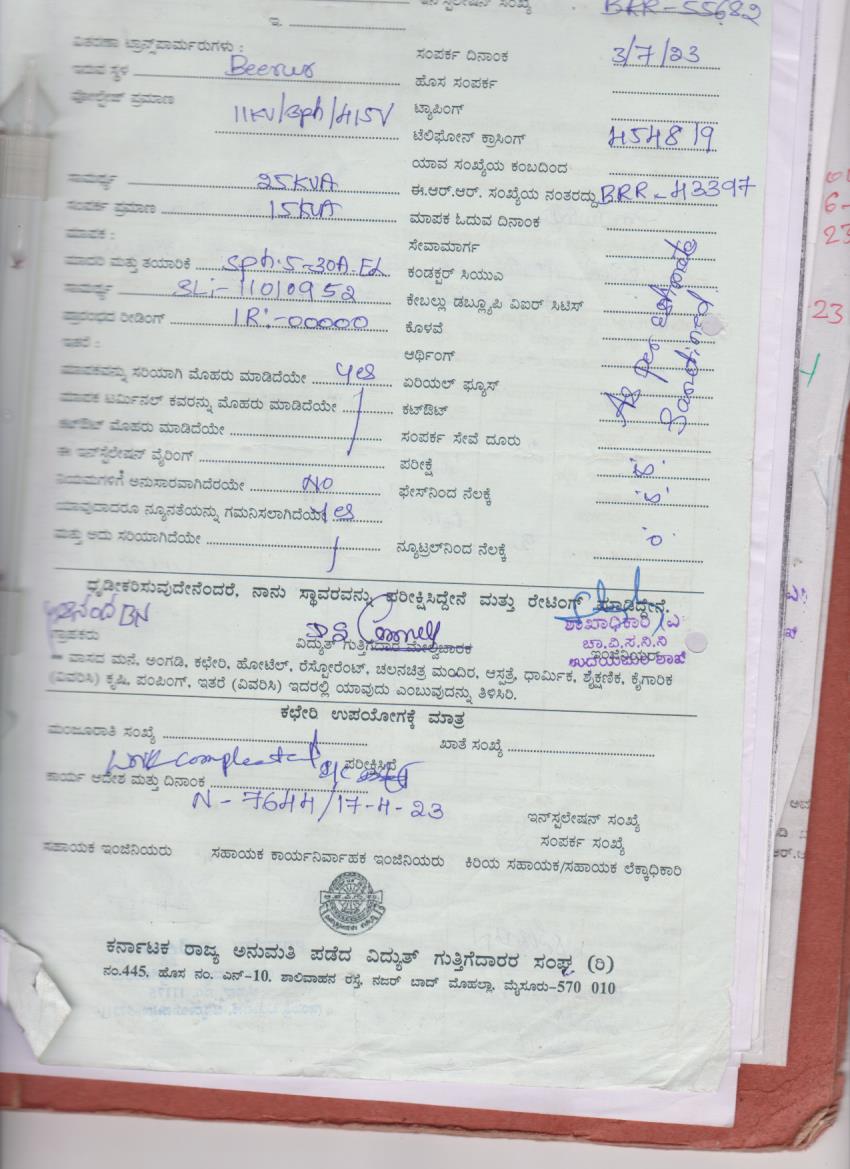 ಇನ್‌ಸ್ಪಲೇಷನ್ ಸಂಖ್ಯೆ BRR-55682
ಇ.
ವಿತರಣಾ ಟ್ರಾನ್ಸ್‌ಫಾರ್ಮರುಗಳು : ಸಂಪರ್ಕ ದಿನಾಂಕ 3/7/23
ಇರುವ ಸ್ಥಳ Beerur ಹೊಸ ಸಂಪರ್ಕ
ವೋಲ್ಟೇಜ್ ಪ್ರಮಾಣ 11KV/3ph/415V ಟ್ಯಾಪಿಂಗ್
ಟೆಲಿಫೋನ್ ಕ್ರಾಸಿಂಗ್ 454819
ಯಾವ ಸಂಖ್ಯೆಯ ಕಂಬದಿಂದ
ಸಾಮರ್ಥ್ಯ 25KVA ಈ.ಆರ್.ಆರ್. ಸಂಖ್ಯೆಯ ನಂತರದ್ದು BRR-43397
ಸಂಪರ್ಕ ಪ್ರಮಾಣ 15KVA ಮಾಪಕ ಓದುವ ದಿನಾಂಕ
ಮಾಪಕ : ಸೇವಾಮಾರ್ಗ
ಮಾದರಿ ಮತ್ತು ತಯಾರಿಕೆ 3ph:5-30A-EL ಕಂಡಕ್ಟರ್ ಸಿಯುಎ
ಸಾಮರ್ಥ್ಯ SL:-11010952 ಕೇಬಲ್ಲು ಡಬ್ಲ್ಯೂಪಿ ವಿಐರ್ ಸಿಟಿಸ್
ಪ್ರಾರಂಭದ ರೀಡಿಂಗ್ IR:-00000 ಕೊಳವೆ
ಇತರೆ : ಆರ್ಥಿಂಗ್
ಮಾಪಕವನ್ನು ಸರಿಯಾಗಿ ಮೊಹರು ಮಾಡಿದೆಯೇ yes ಏರಿಯಲ್ ಫ್ಯೂಸ್
ಮಾಪಕ ಟರ್ಮಿನಲ್ ಕವರನ್ನು ಮೊಹರು ಮಾಡಿದೆಯೇ ಕಟ್‌ಔಟ್
ಕಟ್‌ಔಟ್ ಮೊಹರು ಮಾಡಿದೆಯೇ ಸಂಪರ್ಕ ಸೇವೆ ದೂರು
ಈ ಇನ್‌ಸ್ಪಲೇಷನ್ ವೈರಿಂಗ್ ಪರೀಕ್ಷೆ
ನಿಯಮಗಳಿಗೆ ಅನುಸಾರವಾಗಿದೆರಯೇ NO ಫೇಸ್‌ನಿಂದ ನೆಲಕ್ಕೆ
ಯಾವುದಾದರೂ ನ್ಯೂನತೆಯನ್ನು ಗಮನಿಸಲಾಗಿದೆಯೇ yes
ಮತ್ತು ಅದು ಸರಿಯಾಗಿದೆಯೇ ನ್ಯೂಟ್ರಲ್‌ನಿಂದ ನೆಲಕ್ಕೆ
ಧೃಡೀಕರಿಸುವುದೇನೆಂದರೆ, ನಾನು ಸ್ಥಾವರವನ್ನು ಪರೀಕ್ಷಿಸಿದ್ದೇನೆ ಮತ್ತು ರೇಟಿಂಗ್ ಮಾಡಿದ್ದೇನೆ.
ಶಾಖಾಧಿಕಾರಿ
ಗ್ರಾಹಕರು ವಿದ್ಯುತ್ ಗುತ್ತಿಗೆದಾರ ಮೇಲ್ವಿಚಾರಕ ಚಾ.ವಿ.ಸ.ನಿ.ನಿ ಇಂಜಿನಿಯರು
= ವಾಸದ ಮನೆ, ಅಂಗಡಿ, ಕಛೇರಿ, ಹೋಟೆಲ್, ರೆಸ್ಟೋರೆಂಟ್, ಚಲನಚಿತ್ರ ಮಂದಿರ, ಆಸ್ಪತ್ರೆ, ಧಾರ್ಮಿಕ, ಶೈಕ್ಷಣಿಕ, ಕೈಗಾರಿಕ
(ವಿವರಿಸಿ) ಕೃಷಿ, ಪಂಪಿಂಗ್, ಇತರೆ (ವಿವರಿಸಿ) ಇದರಲ್ಲಿ ಯಾವುದು ಎಂಬುವುದನ್ನು ತಿಳಿಸಿರಿ.
ಕಛೇರಿ ಉಪಯೋಗಕ್ಕೆ ಮಾತ್ರ
ಮಂಜೂರಾತಿ ಸಂಖ್ಯೆ ಖಾತೆ ಸಂಖ್ಯೆ
Work compleated ಪರೀಕ್ಷಿಸಿದೆ
ಕಾರ್ಯ ಆದೇಶ ಮತ್ತು ದಿನಾಂಕ
N-7644/17-4-23
ಇನ್‌ಸ್ಪಲೇಷನ್ ಸಂಖ್ಯೆ
ಸಂಪರ್ಕ ಸಂಖ್ಯೆ
ಸಹಾಯಕ ಇಂಜಿನಿಯರು ಸಹಾಯಕ ಕಾರ್ಯನಿರ್ವಾಹಕ ಇಂಜಿನಿಯರು ಕಿರಿಯ ಸಹಾಯಕ/ಸಹಾಯಕ ಲೆಕ್ಕಾಧಿಕಾರಿ
ಕರ್ನಾಟಕ ರಾಜ್ಯ ಅನುಮತಿ ಪಡೆದ ವಿದ್ಯುತ್ ಗುತ್ತಿಗೆದಾರರ ಸಂಘ (ರಿ)
ನಂ.445, ಹೊಸ ನಂ. ಎನ್-10, ಶಾಲಿವಾಹನ ರಸ್ತೆ, ನಜರ್ ಬಾದ್ ಮೊಹಲ್ಲಾ, ಮೈಸೂರು-570 010